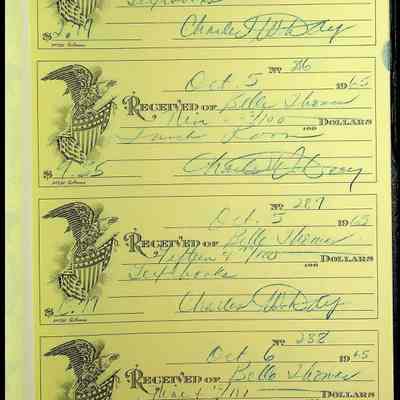 Textbooks
$ Charles W. Day
No 286
Oct. 5 1965
RECEIVED OF Belle Thomas
Nine /100 DOLLARS
Lunch Room
$ 9.25 Charles W. Day
No 287
Oct. 5 1965
RECEIVED OF Belle Thomas
Fifteen /100 DOLLARS
Textbooks
$ Charles W. Day
No 288
Oct. 6 1965
RECEIVED OF Bella Thomas
Nine /100 DOLLARS